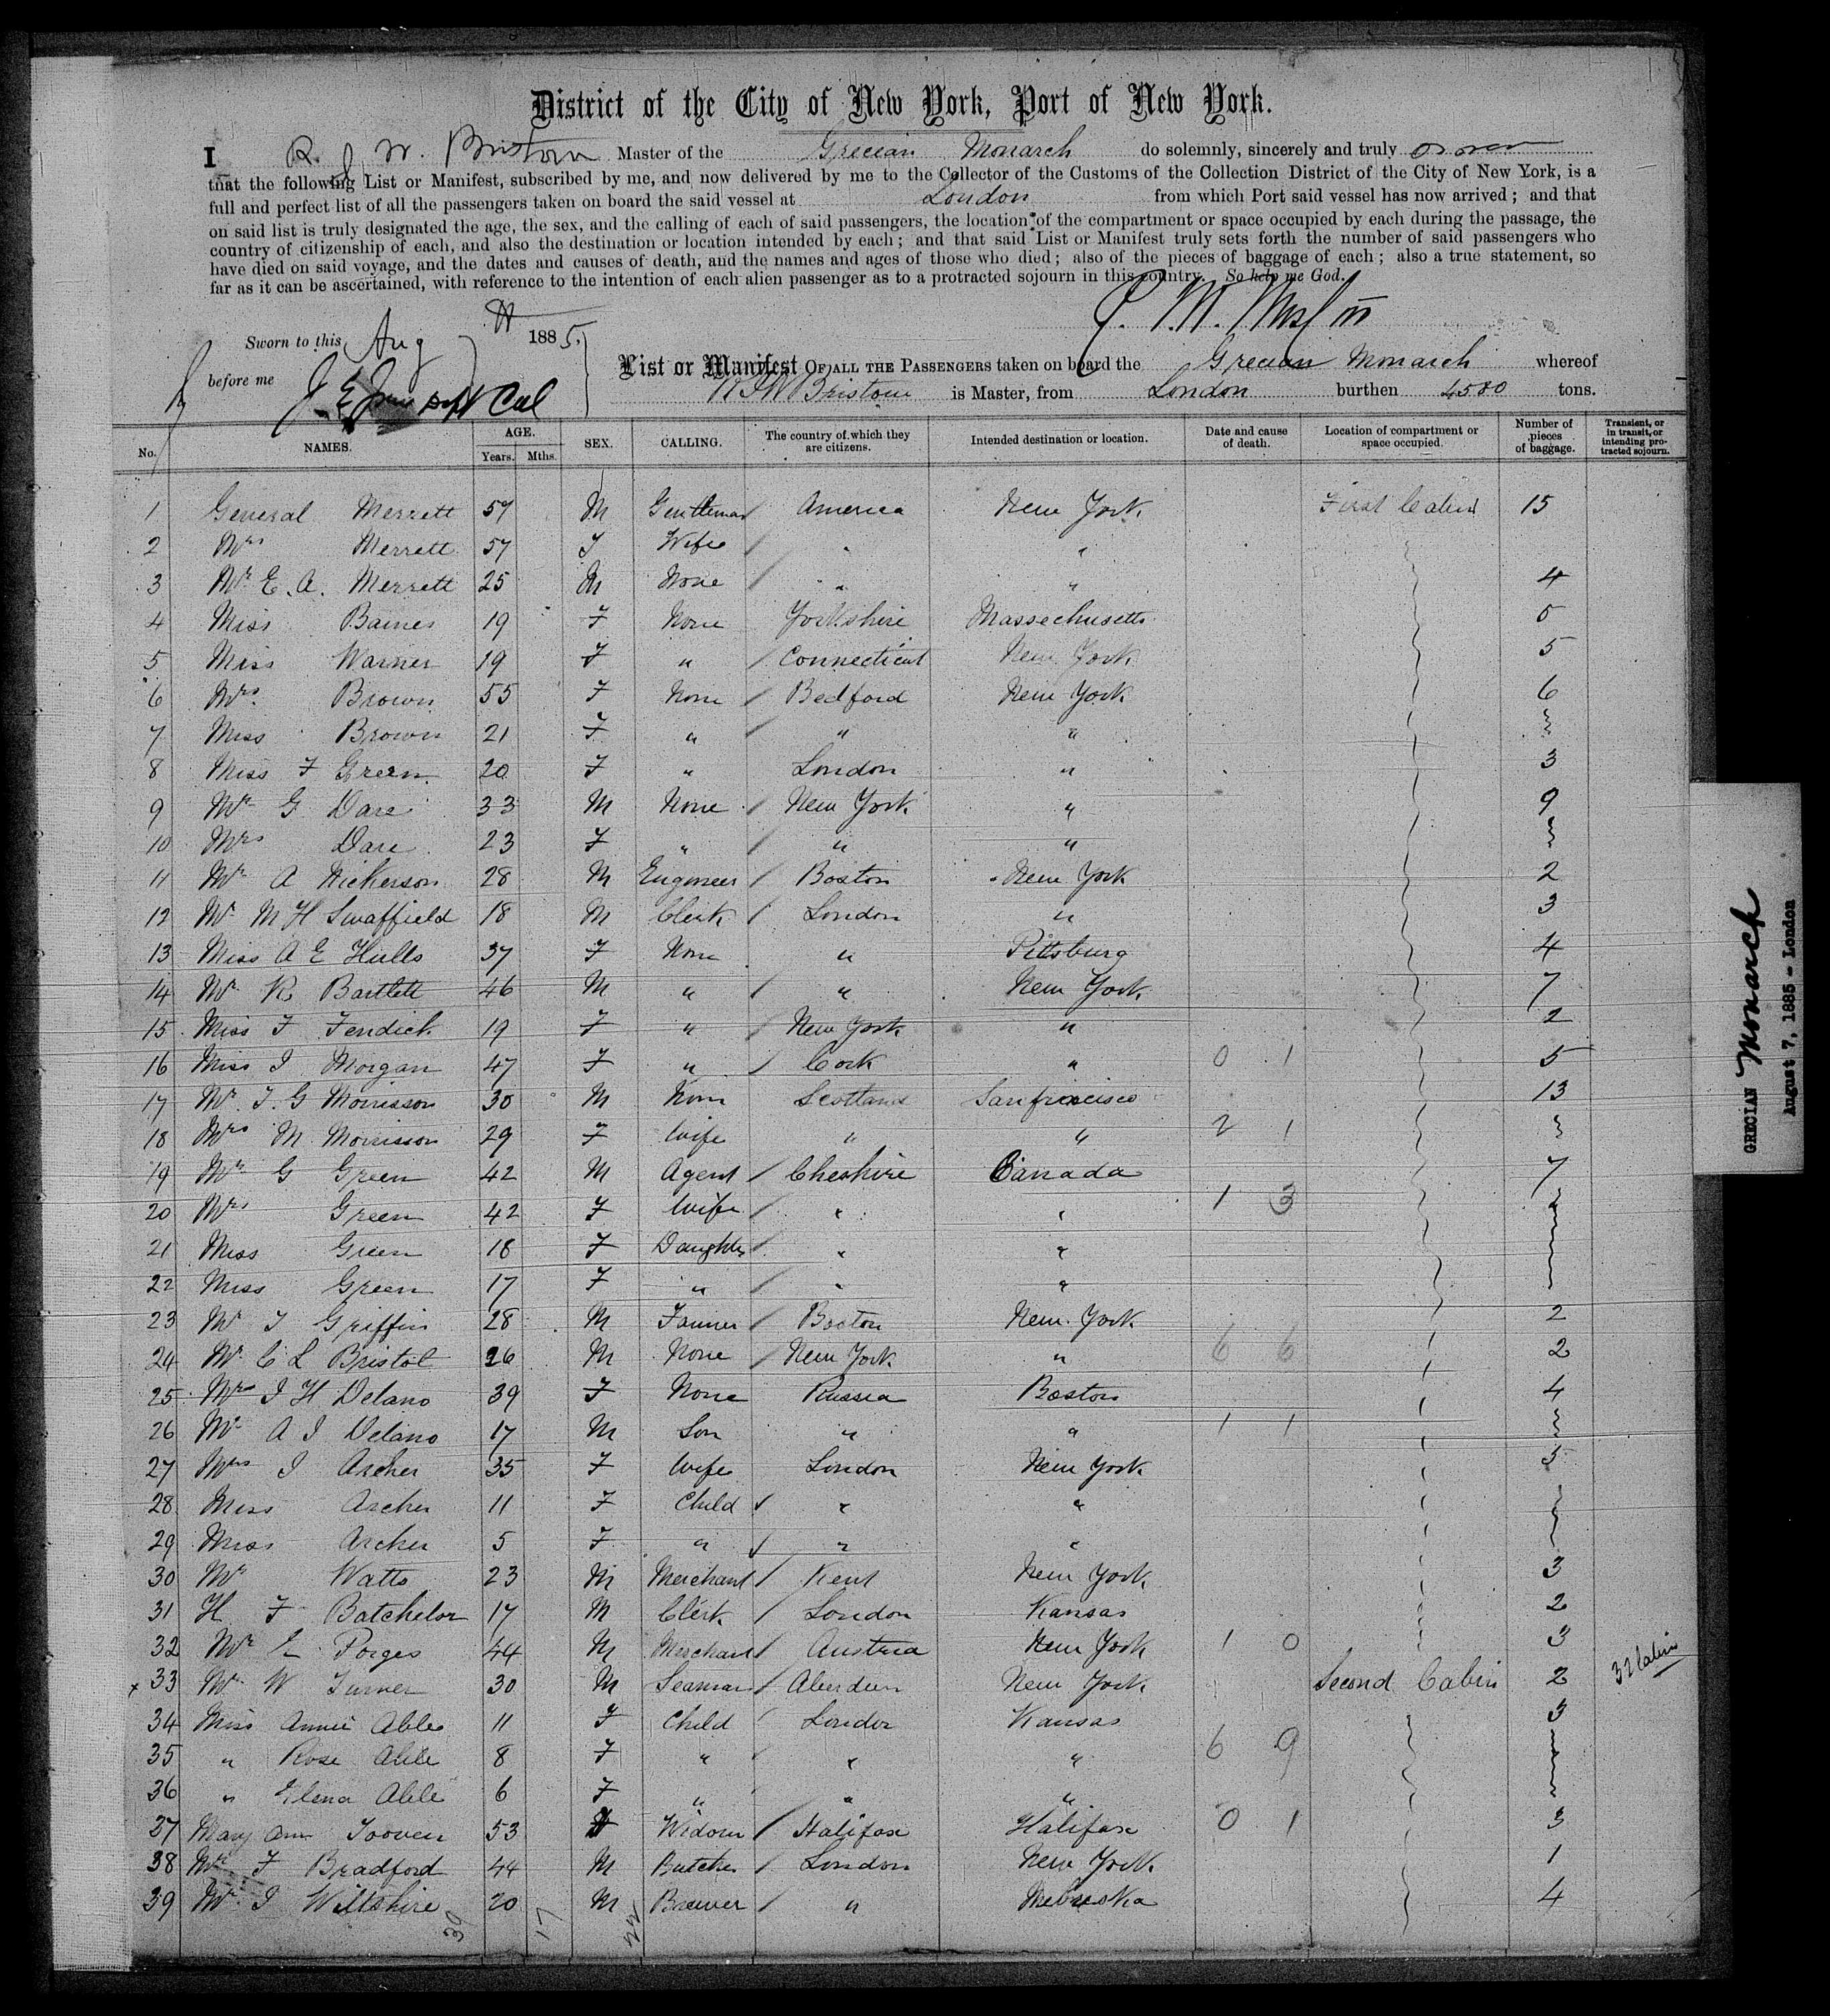 District of the City of New York, Port of New York.
I R. J. W. Bristow Master of the Grecian Monarch do solemnly, sincerely and truly
that the following List or Manifest, subscribed by me, and now delivered by me to the Collector of the Customs of the Collection District of the City of New York, is a
full and perfect list of all the passengers taken on board the said vessel at London from which Port said vessel has now arrived; and that
on said list is truly designated the age, the sex, and the calling of each of said passengers, the location of the compartment or space occupied by each during the passage, the
country of citizenship of each, and also the destination or location intended by each; and that said List or Manifest truly sets forth the number of said passengers who
have died on said voyage, and the dates and causes of death, and the names and ages of those who died; also of the pieces of baggage of each; also a true statement, so
far as it can be ascertained, with reference to the intention of each alien passenger as to a protracted sojourn in this country. So help me God.
Sworn to this Aug 1885.
before me
List or Manifest OF ALL THE PASSENGERS taken on board the Grecian Monarch whereof
Bristow is Master, from London burthen 4580 tons.
No. NAMES. AGE. Years. Mths. SEX. CALLING. The country of which they are citizens. Intended destination or location. Date and cause of death. Location of compartment or space occupied. Number of pieces of baggage. Transient, or in transit, or intending protracted sojourn.
1 General Merrett 57 M Gentleman America New York First Cabin 15
2 Mrs Merrett 57 F Wife " "
3 Mr E. A. Merrett 25 M None " " 4
4 Miss Baines 19 F None Yorkshire Massechusetts 5
5 Miss Warner 19 F " Connecticut New York 5
6 Mrs Brown 55 F None Bedford New York 6
7 Miss Brown 21 F " " "
8 Miss F Green 20 F " London " 3
9 Mr G Dare 33 M None New York " 9
10 Mrs Dare 23 F " " "
11 Mr A Nickerson 28 M Engineer Boston New York 2
12 Mr M H Swaffield 18 M Clerk London " 3
13 Miss A E Hults 37 F None " Pittsburg 4
14 Mr R Bartlett 46 M " " New York 7
15 Miss F Fendick 19 F " New York " 2
16 Miss I Morgan 47 F " Cork " 0 1 5
17 Mr T. G Morrisson 30 M None Scotland Sanfrancisco 13
18 Mrs M Morrisson 29 F Wife " " 2 1
19 Mr G Green 42 M Agent Cheshire Canada 7
20 Mrs Green 42 F Wife " " 1 3
21 Miss Green 18 F Daughter " "
22 Miss Green 17 F " " "
23 Mr T Griffin 28 M Farmer Boston New York 2
24 Mr C L Bristol 26 M None New York " 6 6 2
25 Mrs I H Delano 39 F None Russia Boston 4
26 Mr A I Delano 17 M Son " " 1 1
27 Mrs I Archer 35 F Wife London New York 5
28 Miss Archer 11 F Child " "
29 Miss Archer 5 F " " "
30 Mr Watts 23 M Merchant Kent New York 3
31 H F Batchelor 17 M Clerk London Kansas 2
32 Mr E Porges 44 M Merchant Austria New York 1 0 3
33 Mr W Turner 30 M Seaman Aberdeen New York Second Cabin 2 32 Cabin
34 Miss Annie Able 11 F Child London Kansas 3
35 " Rose Able 8 F " " " 6 9
36 " Elena Able 6 F " " "
37 Mary Ann Tooven 53 Widow Halifax Halifax 0 1 3
38 Mr F Bradford 44 M Butcher London New York 1
39 Mr I Wiltshire 20 M Brewer " Nebraska 4
39 17 22
GRECIAN Monarch
August 7, 1885 - London